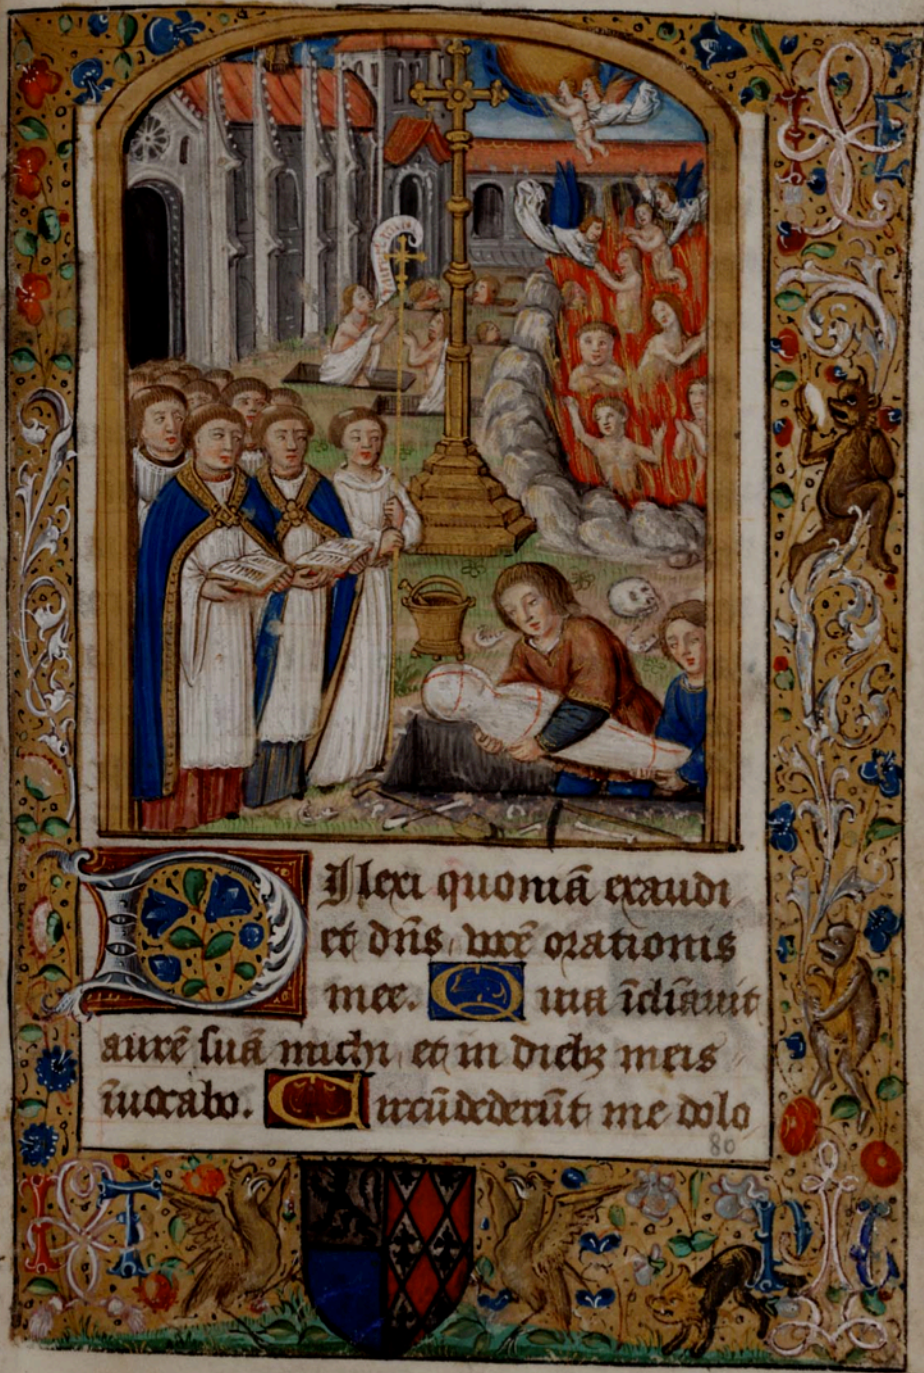 Dilexi quoniā exaudi
et dn̄s vocē orationis
mee. Quia īcliāuit
aurē suā michi et in diebꝫ meis
īuocabo. Circūdederūt me dolo
80